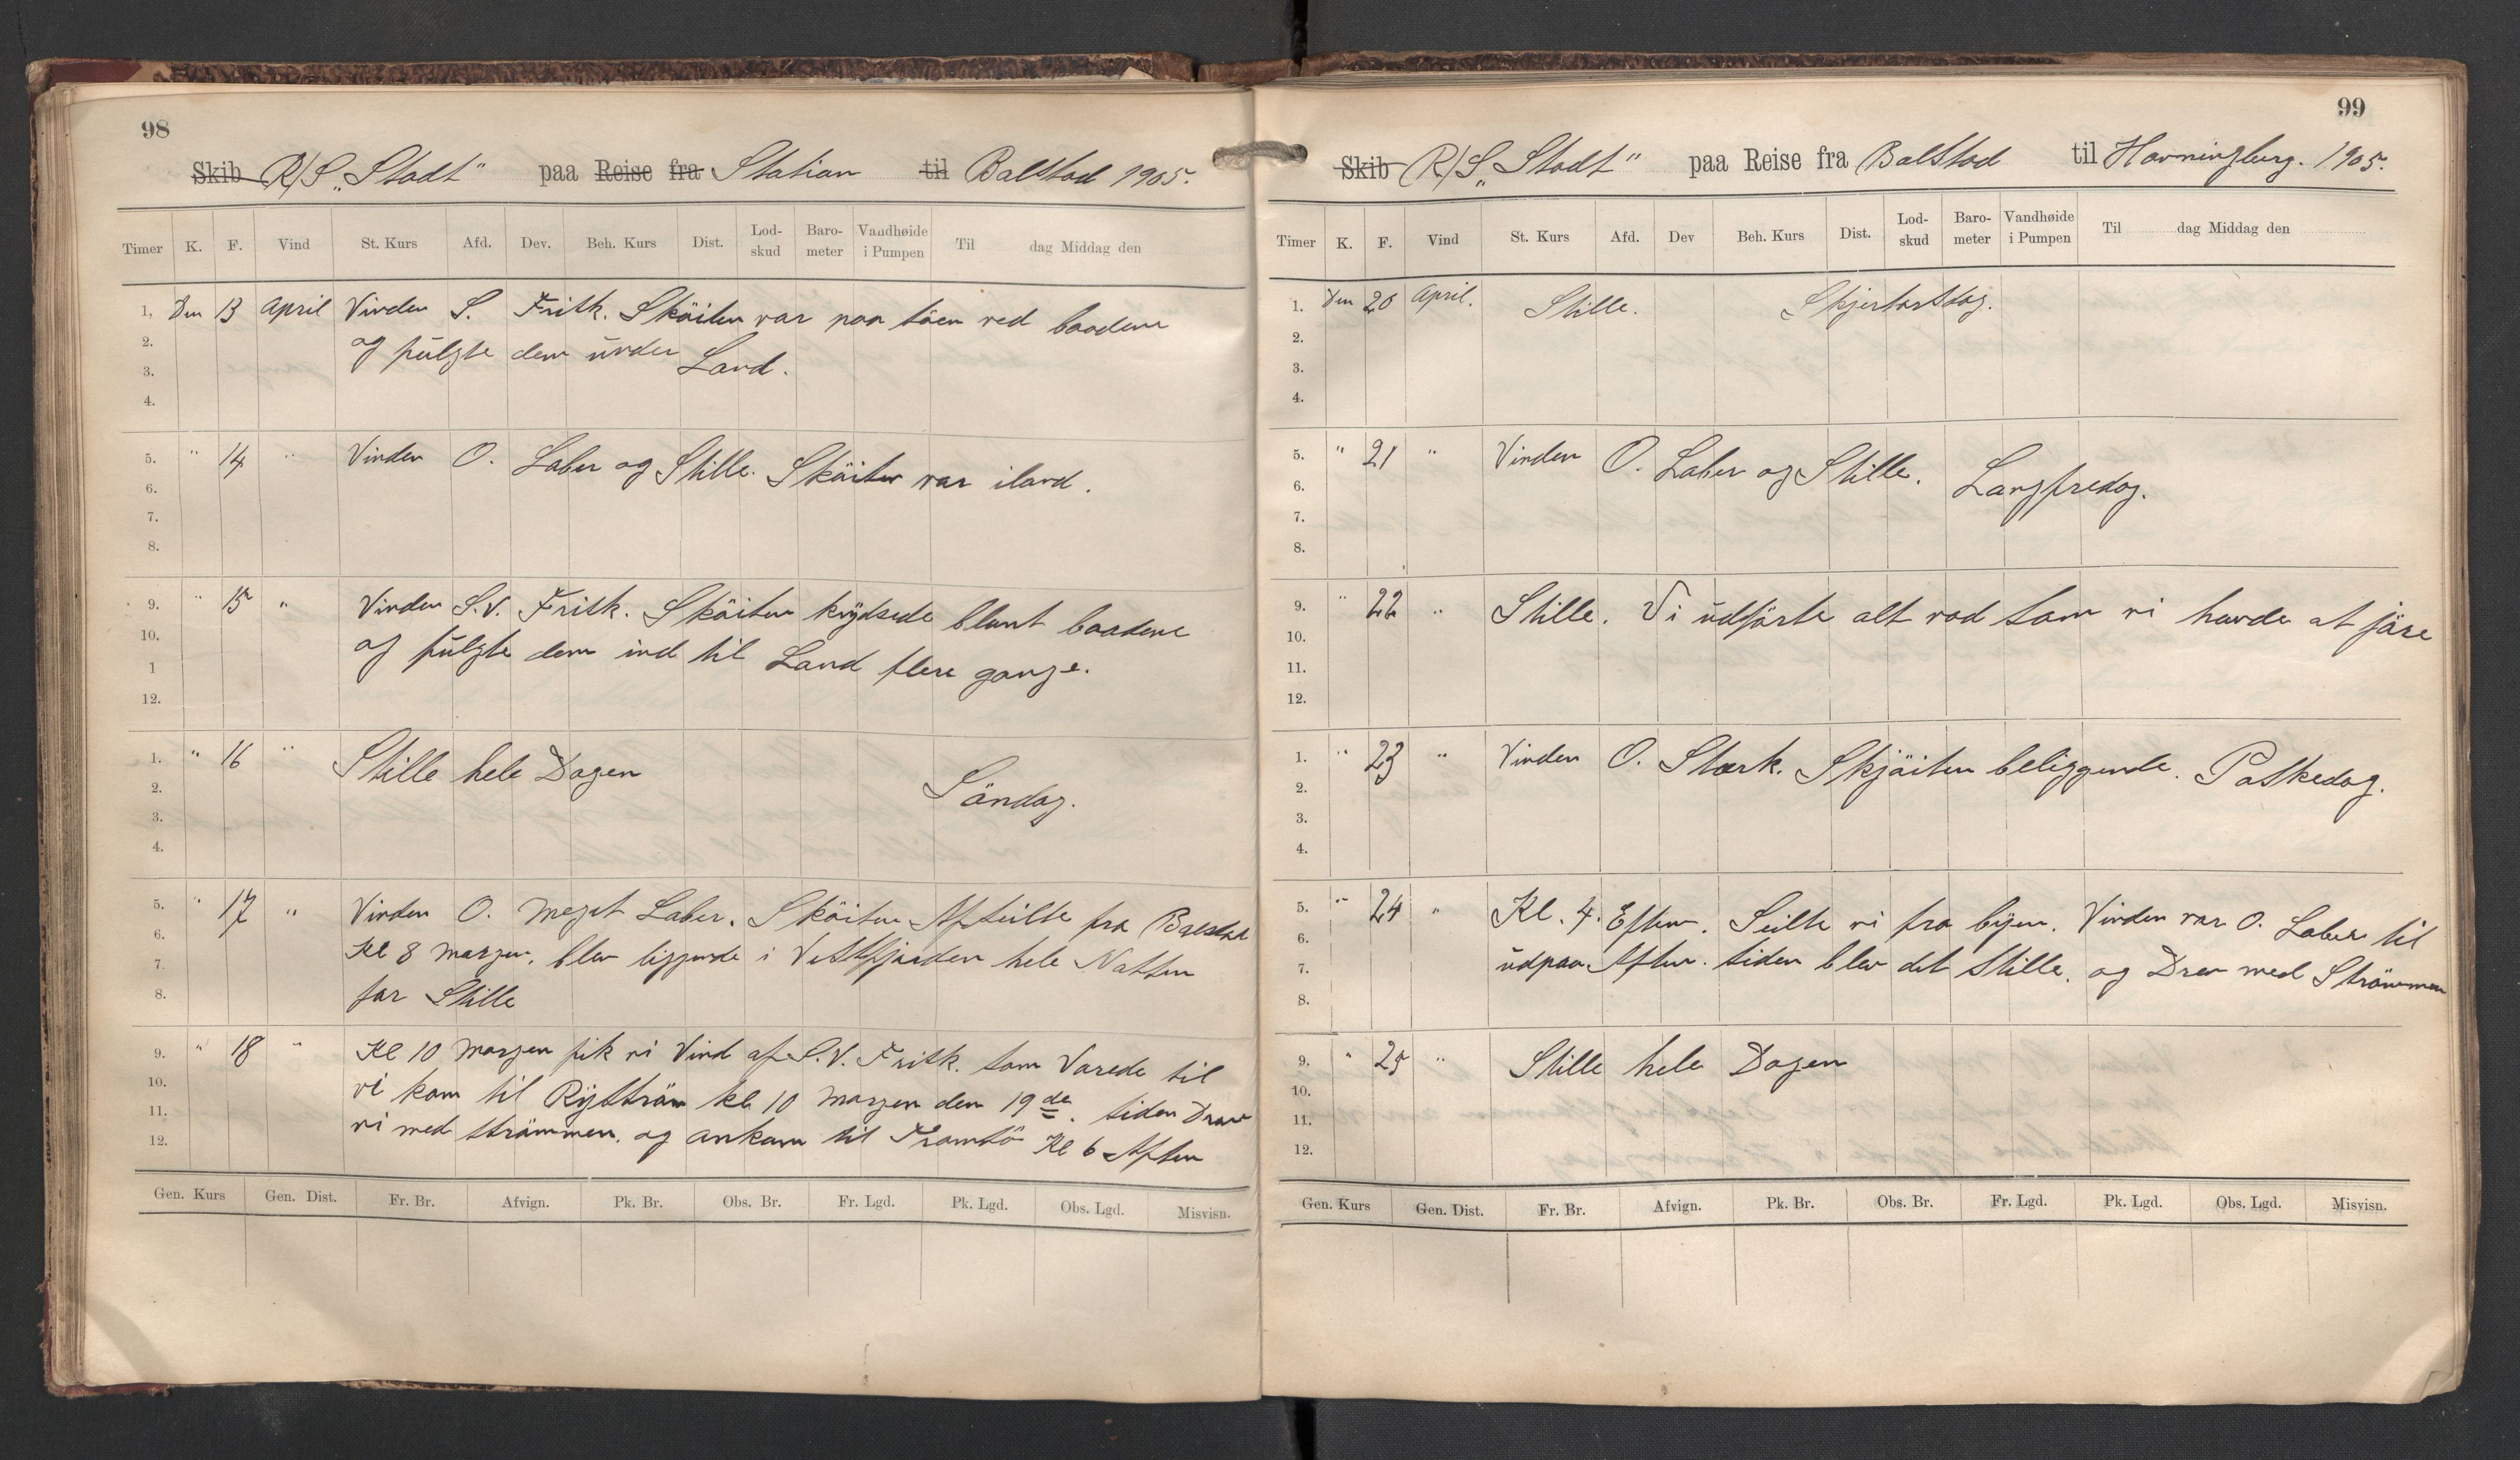 98
Skib R/S „Stadt" paa Reise fra Station til Balstad 1905.
Timer K. F. Vind St. Kurs Afd. Dev. Beh. Kurs Dist. Lod-skud Baro-meter Vandhøide i Pumpen Til dag Middag den
1. Den 13 April Vinden S. Frisk. Sköiten var paa söen ved baadene
2. og fulgte dem under Land.
3.
4.
5. " 14 " Vinden O. Laber og Stille. Sköiten var iland.
6.
7.
8.
9. " 15 " Vinden S.V. Frisk. Sköiten krydsede blant baadene
10. og fulgte dem ind til Land flere gange.
1
12.
1. " 16 " Stille hele Dagen
2. Söndag.
3.
4.
5. " 17 " Vinden O. Meget Laber. Sköiten Afseilte fra Balstad
6. Kl 8 Morgen. blev liggende i Vestfjorden hele Natten
7.
8. for Stille
9. " 18 " Kl 10 Morgen fik vi Vind af S.V. Frisk. som Varede til
10. vi kom til Rystström kl 10 Morgen den 19de. siden Drev
11. vi med strömmen. og ankom til Tromsö Kl 6 Aften
12.
Gen. Kurs Gen. Dist. Fr. Br. Afvign. Pk. Br. Obs. Br. Fr. Lgd. Pk. Lgd. Obs. Lgd. Misvisn.
99
Skib R/S „Stadt" paa Reise fra Balstad til Havningberg. 1905.
Timer K. F. Vind St. Kurs Afd. Dev Beh. Kurs Dist. Lod-skud Baro-meter Vandhøide i Pumpen Til dag Middag den
1. Den 20 April. Stille. Skjertorsdag.
2.
3.
4.
5. " 21 " Vinden O. Laber og Stille. Langfredag.
6.
7.
8.
9. " 22 " Stille. Vi udförte alt vad som vi havde at jöre
10.
11.
12.
1. " 23 " Vinden O. Stærk. Skjöiten beliggende. Paskedag.
2.
3.
4.
5. " 24 " Kl. 4. Efterm. Seilte vi fra byen. Vinden var O. Laber til
6.
7. udpaa Aften. siden blev det Stille. og Drev med Strömmen
8.
9. " 25 " Stille hele Dagen
10.
11.
12.
Gen. Kurs Gen. Dist. Fr. Br. Afvign. Pk. Br. Obs. Br. Fr. Lgd. Pk. Lgd. Obs. Lgd. Misvisn.